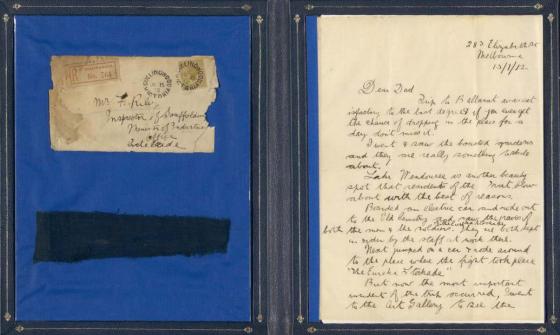 R
No. 704
COLLINGWOOD
Mr F. Riley
Inspector of Scaffolding
Minister of Industries
Office
Adelaide
283 Elizabeth St
Melbourne
Dear Dad
Trip to Ballarat was sat
isfactory to the last degree & if you ever get
the chance of dropping in the place for a
day don't miss it.
I went & saw the boasted gardens
and they are really something to
about.
Lake Wendouree is another beauty
spot that residents of the
about with the best of reasons.
Boarded an electric car and rode out
to the Old Cemetery and saw the graves of
both the men & the soldiers. They are both kept
in order by the staff at work there.
Next jumped on a car & rode around
to the place where the fight took place
"The Eureka Stockade"
But now the most important
incident of the trip occurred, I went
to the Art Gallery to see the